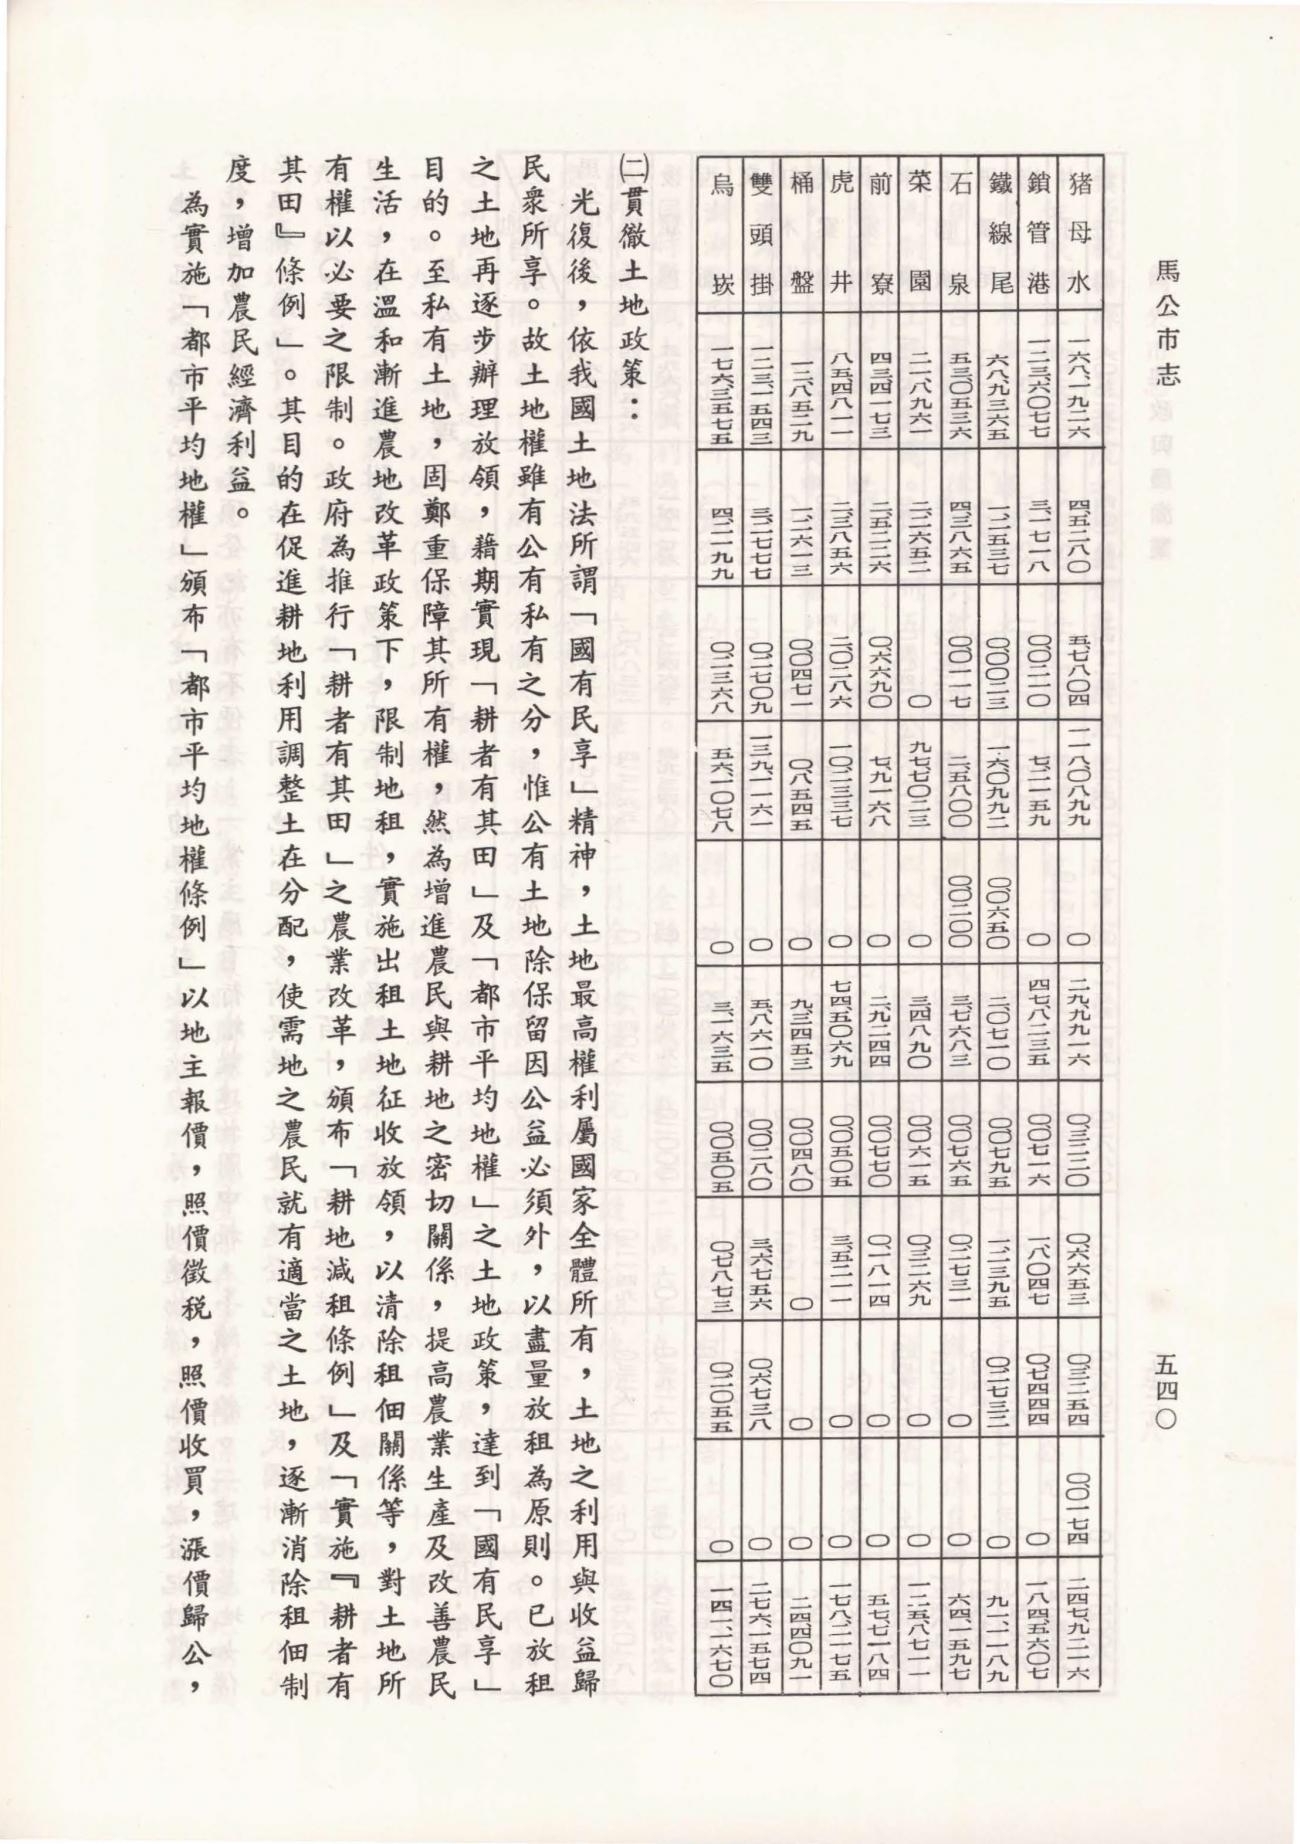 馬公市志
五四〇
猪母水 一六八、一九二六 四、五二八〇 五、七八〇四 三八、〇八九九 〇 二九、九九一六 〇、三二二〇 〇、六六五三 〇、三二五四 〇、〇一七四 二四七、九一二六
鎖管港 一二三、六〇七七 三、一七一八 〇、〇二二〇 七、二一五九 〇 四七、八二三五 〇、〇七一六 一、八〇四七 〇、七四四四 〇 一八四、五六〇七
鐵線尾 六八、九三六五 一、二五三七 〇、〇〇二三 一六、〇九九二 〇、〇六五〇 二、〇七一〇 〇、〇七九五 一、二三九五 〇、二七三二 〇 九一、一一八九
石泉 五三、〇五三六 四、三八六五 〇、〇一一七 二、五八〇〇 〇、〇二〇〇 三、七六八三 〇、〇七六五 〇、二七三一 〇 〇 六四、一五九七
菜園 二一、八九六一 二、二六五二 〇 九七、七〇二三 〇 三、四八九〇 〇、〇六一五 〇、三二六九 〇 〇 一二五、八七一一
前寮 四三、四一七三 二、五二二六 〇、六六九〇 七、九一六八 〇 二、九二四四 〇、〇七七〇 〇、一八一四 〇 〇 五七、七一八四
虎井 八五、四八一一 二、三八五六 二、〇二八六 一〇、二三三七 〇 七四、五〇六九 〇、〇五〇五 三、五二一一 〇 〇 一七八、二一七五
桶盤 一二、八五二九 一、二六一三 〇、〇四七一 〇、八五四五 〇 九、三四五三 〇、〇四八〇 〇 〇 〇 二四、四〇九一
雙頭掛 一二三、一五四三 三、二七七七 〇、二七〇九 一三九、一一六一 〇 五、八六一〇 〇、〇二八〇 三、六七五六 〇、六七三八 〇 二七六、一五七四
烏崁 一七六、三五七五 四、二一九九 〇、二三六八 五六、一〇七八 〇 三、一六三五 〇、〇五〇五 〇、七八七三 〇、二〇五五 〇 一四一、一六七〇
㈡貫徹土地政策：
光復後，依我國土地法所謂「國有民享」精神，土地最高權利屬國家全體所有，土地之利用與收益歸
民衆所享。故土地權雖有公有私有之分，惟公有土地除保留因公益必須外，以盡量放租為原則。已放租
之土地再逐步辦理放領，藉期實現「耕者有其田」及「都市平均地權」之土地政策，達到「國有民享」
目的。至私有土地，固鄭重保障其所有權，然為增進農民與耕地之密切關係，提高農業生產及改善農民
生活，在溫和漸進農地改革政策下，限制地租，實施出租土地征收放領，以清除租佃關係等，對土地所
有權以必要之限制。政府為推行「耕者有其田」之農業改革，頒布「耕地減租條例」及「實施『耕者有
其田』條例」。其目的在促進耕地利用調整土在分配，使需地之農民就有適當之土地，逐漸消除租佃制
度，增加農民經濟利益。
為實施「都市平均地權」頒布「都市平均地權條例」以地主報價，照價徵税，照價收買，漲價歸公，